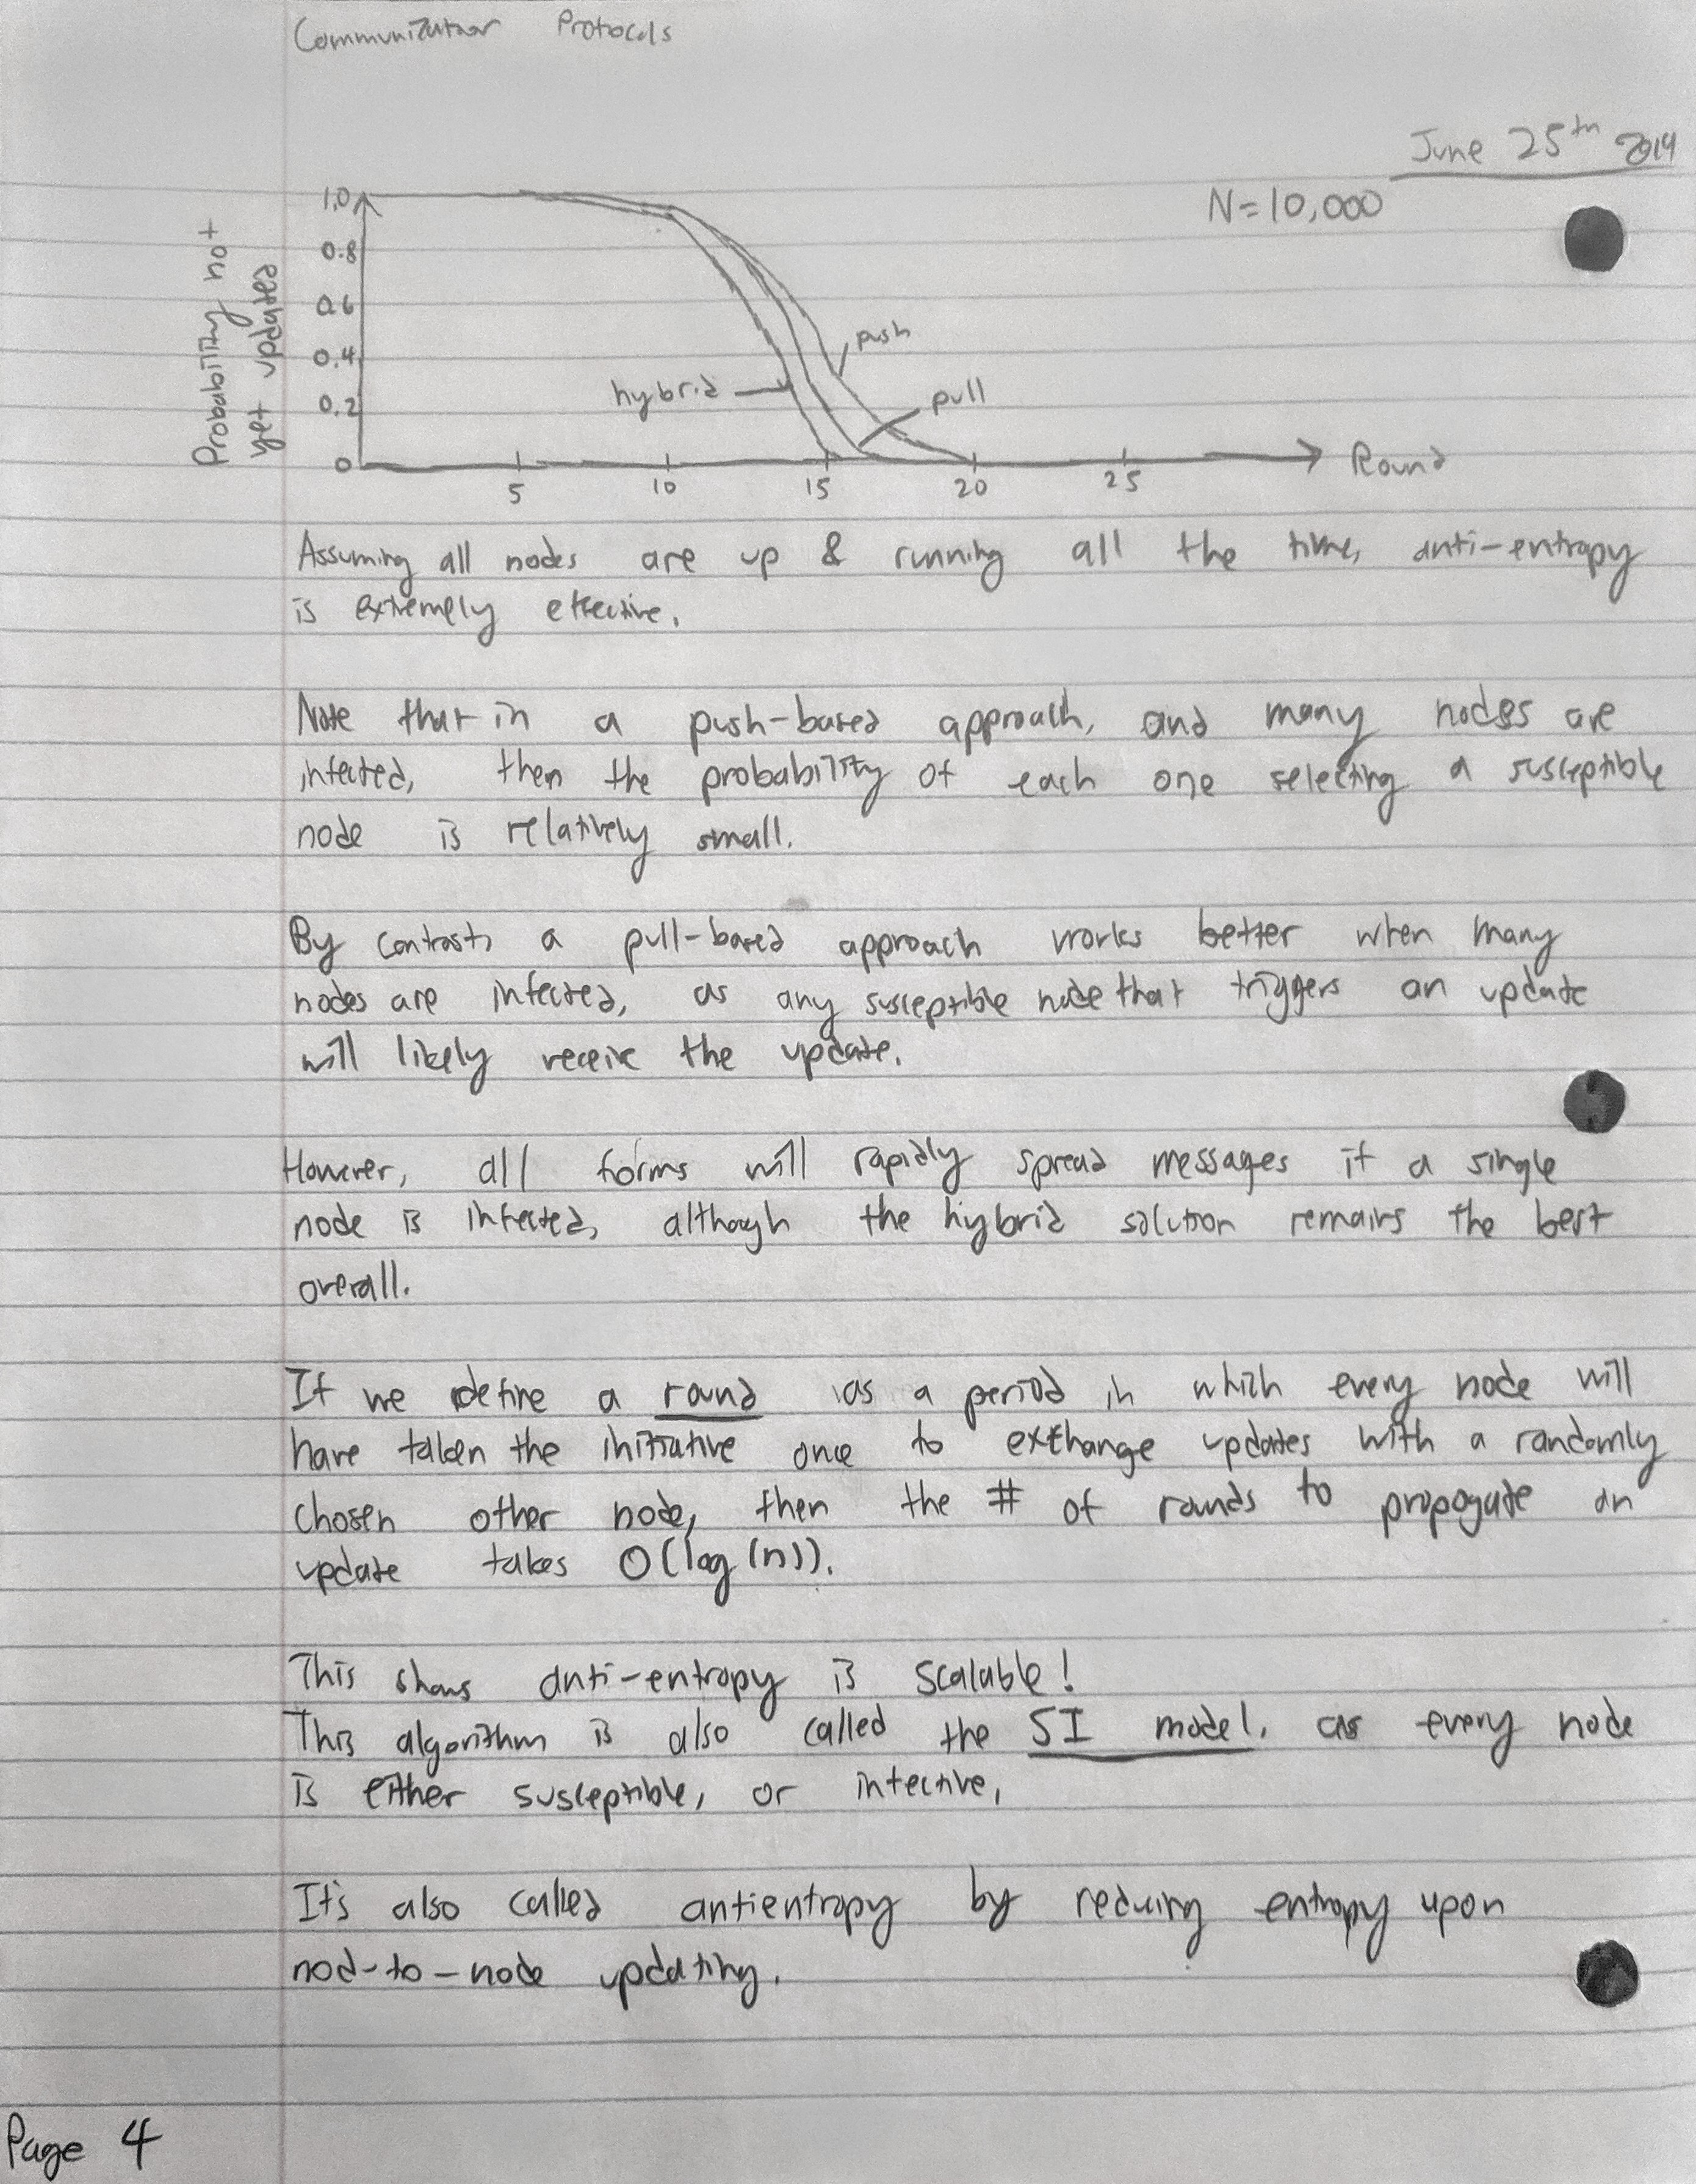 Communication Protocols
June 25th 2019
N=10,000
Probability not
yet updated
1.0
0.8
0.6
0.4
0.2
0
push
hybrid
pull
5 10 15 20 25
Round
Assuming all nodes are up & running all the time, anti-entropy
is extremely effective.
Note that in a push-based approach, and many nodes are
infected, then the probability of each one selecting a susceptible
node is relatively small.
By contrast, a pull-based approach works better when many
nodes are infected, as any susceptible node that triggers an update
will likely receive the update.
However, all forms will rapidly spread messages if a single
node is infected, although the hybrid solution remains the best
overall.
If we define a round as a period in which every node will
have taken the initiative once to exchange updates with a randomly
chosen other node, then the # of rounds to propogate an
update takes O(log(n)).
This shows anti-entropy is scalable!
This algorithm is also called the SI model, as every node
is either susceptible, or infective.
It's also called antientropy by reducing entropy upon
nod-to-node updating.
Page 4